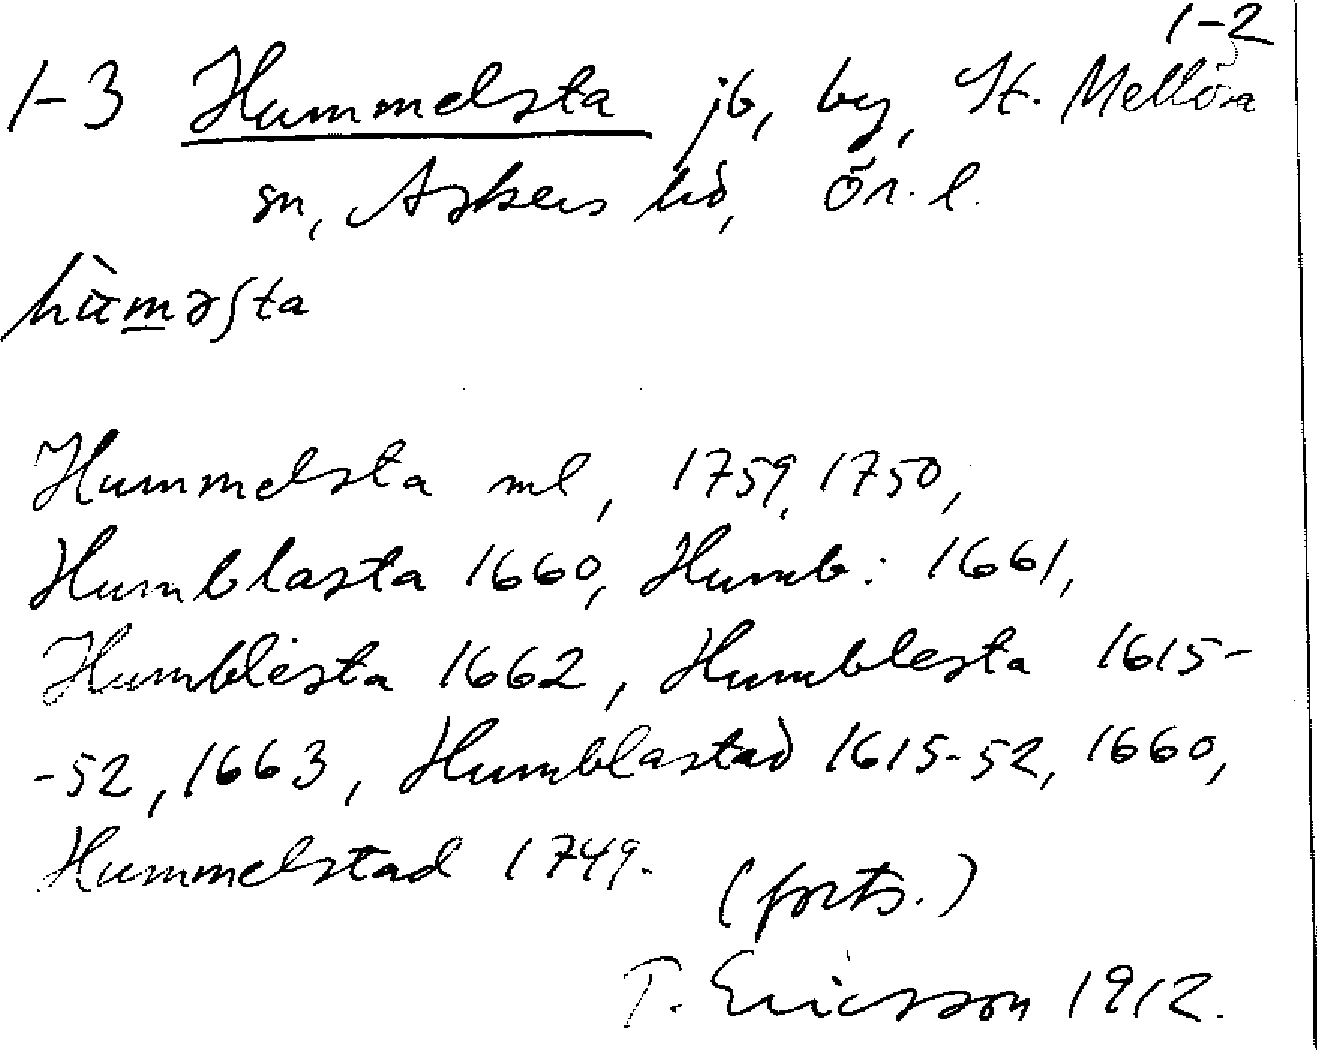 1-2
1-3 Hummelsta jb, by, St. Mellösa
sn, Askers hd, Ör. l.
Hummelsta ml, 1759, 1750,
Humblasta 1660, Humb: 1661,
Humblesta 1662, Humblesta 1615-
-52, 1663, Humblastad 1615-52, 1660,
Hummelstad 1749.
(forts.)
T. Ericsson 1912.